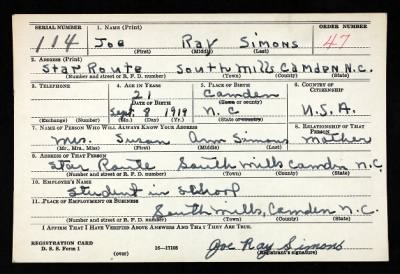 SERIAL NUMBER 1. NAME (Print) ORDER NUMBER
114 Joe Ray Simons 47
(First) (Middle) (Last)
2. ADDRESS (Print)
Star Route South Mills Camden N.C.
(Number and street or R. F. D. number) (Town) (County) (State)
3. TELEPHONE 4. AGE IN YEARS 5. PLACE OF BIRTH 6. COUNTRY OF CITIZENSHIP
21 Camden
DATE OF BIRTH (Town or county)
Sept. 9 1919 N. C U.S.A.
(Exchange) (Number) (Mo.) (Day) (Yr.) (State or country)
7. NAME OF PERSON WHO WILL ALWAYS KNOW YOUR ADDRESS 8. RELATIONSHIP OF THAT PERSON
Mrs. Susan Ann Simons Mother
(Mr., Mrs., Miss) (First) (Middle) (Last)
9. ADDRESS OF THAT PERSON
Star Route South Mills Camden N.C.
(Number and street or R. F. D. number) (Town) (County) (State)
10. EMPLOYER'S NAME
Student in School
11. PLACE OF EMPLOYMENT OR BUSINESS
South Mills, Camden N.C.
(Number and street or R. F. D. number) (Town) (County) (State)
I AFFIRM THAT I HAVE VERIFIED ABOVE ANSWERS AND THAT THEY ARE TRUE.
REGISTRATION CARD Joe Ray Simons
D. S. S. Form 1 (over) 16—17105 (Registrant's signature)